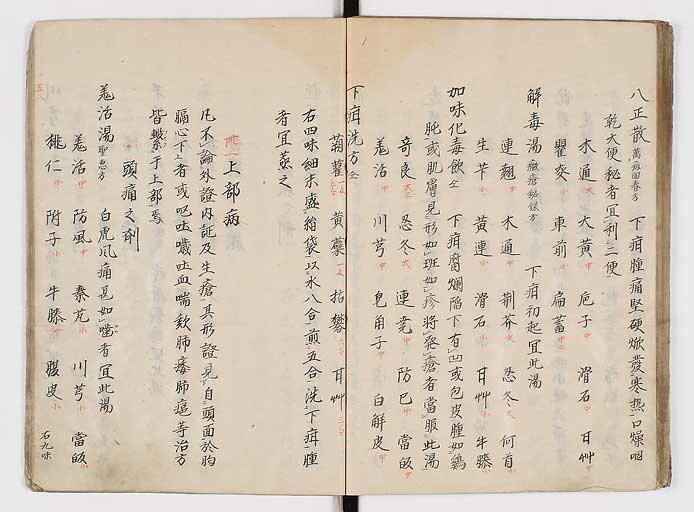 八正散 萬病回春方 下疳腫痛堅硬焮發寒熱口燥咽
乾大便秘者宜利二便
木通中 大黄中 梔子中 滑石中 甘艸中
瞿麥小 車前小 扁蓄中
解毒湯 黴瘡秘録方 下疳初起宜此湯
連翹中 木通中 荊芥大 忍冬大 何首小
生芐小 黄連小 滑石小 甘艸小 牛膝小
加味化毒飲 仝 下疳腐爛陥下有凹或包皮腫如鷄
肫或肌膚見形如班如疹將發瘡者當服此湯
奇良大 忍冬大 連壳中 防已中 當皈中
羗活 川芎中 皂角子中 白鮮皮中
下疳洗方 仝
菊蘿 黄蘗 枯礬 甘艸
右四味細末盛絹袋以水八合煎五合洗下疳腫
者宜蒸之
上部病
凡不論外證内証及生瘡其形證見自頭面於胸
膈心下上者或呕吐嘰吐血喘欬肺痿肺癰等治方
皆繋于上部焉
頭痛之剤
羗活湯 聖惠方 白虎风痛甚如嚙者宜此湯
羗活中 防風中 秦艽小 川芎小 當皈小
桃仁小 附子小 牛膝中 腹皮小 右九味